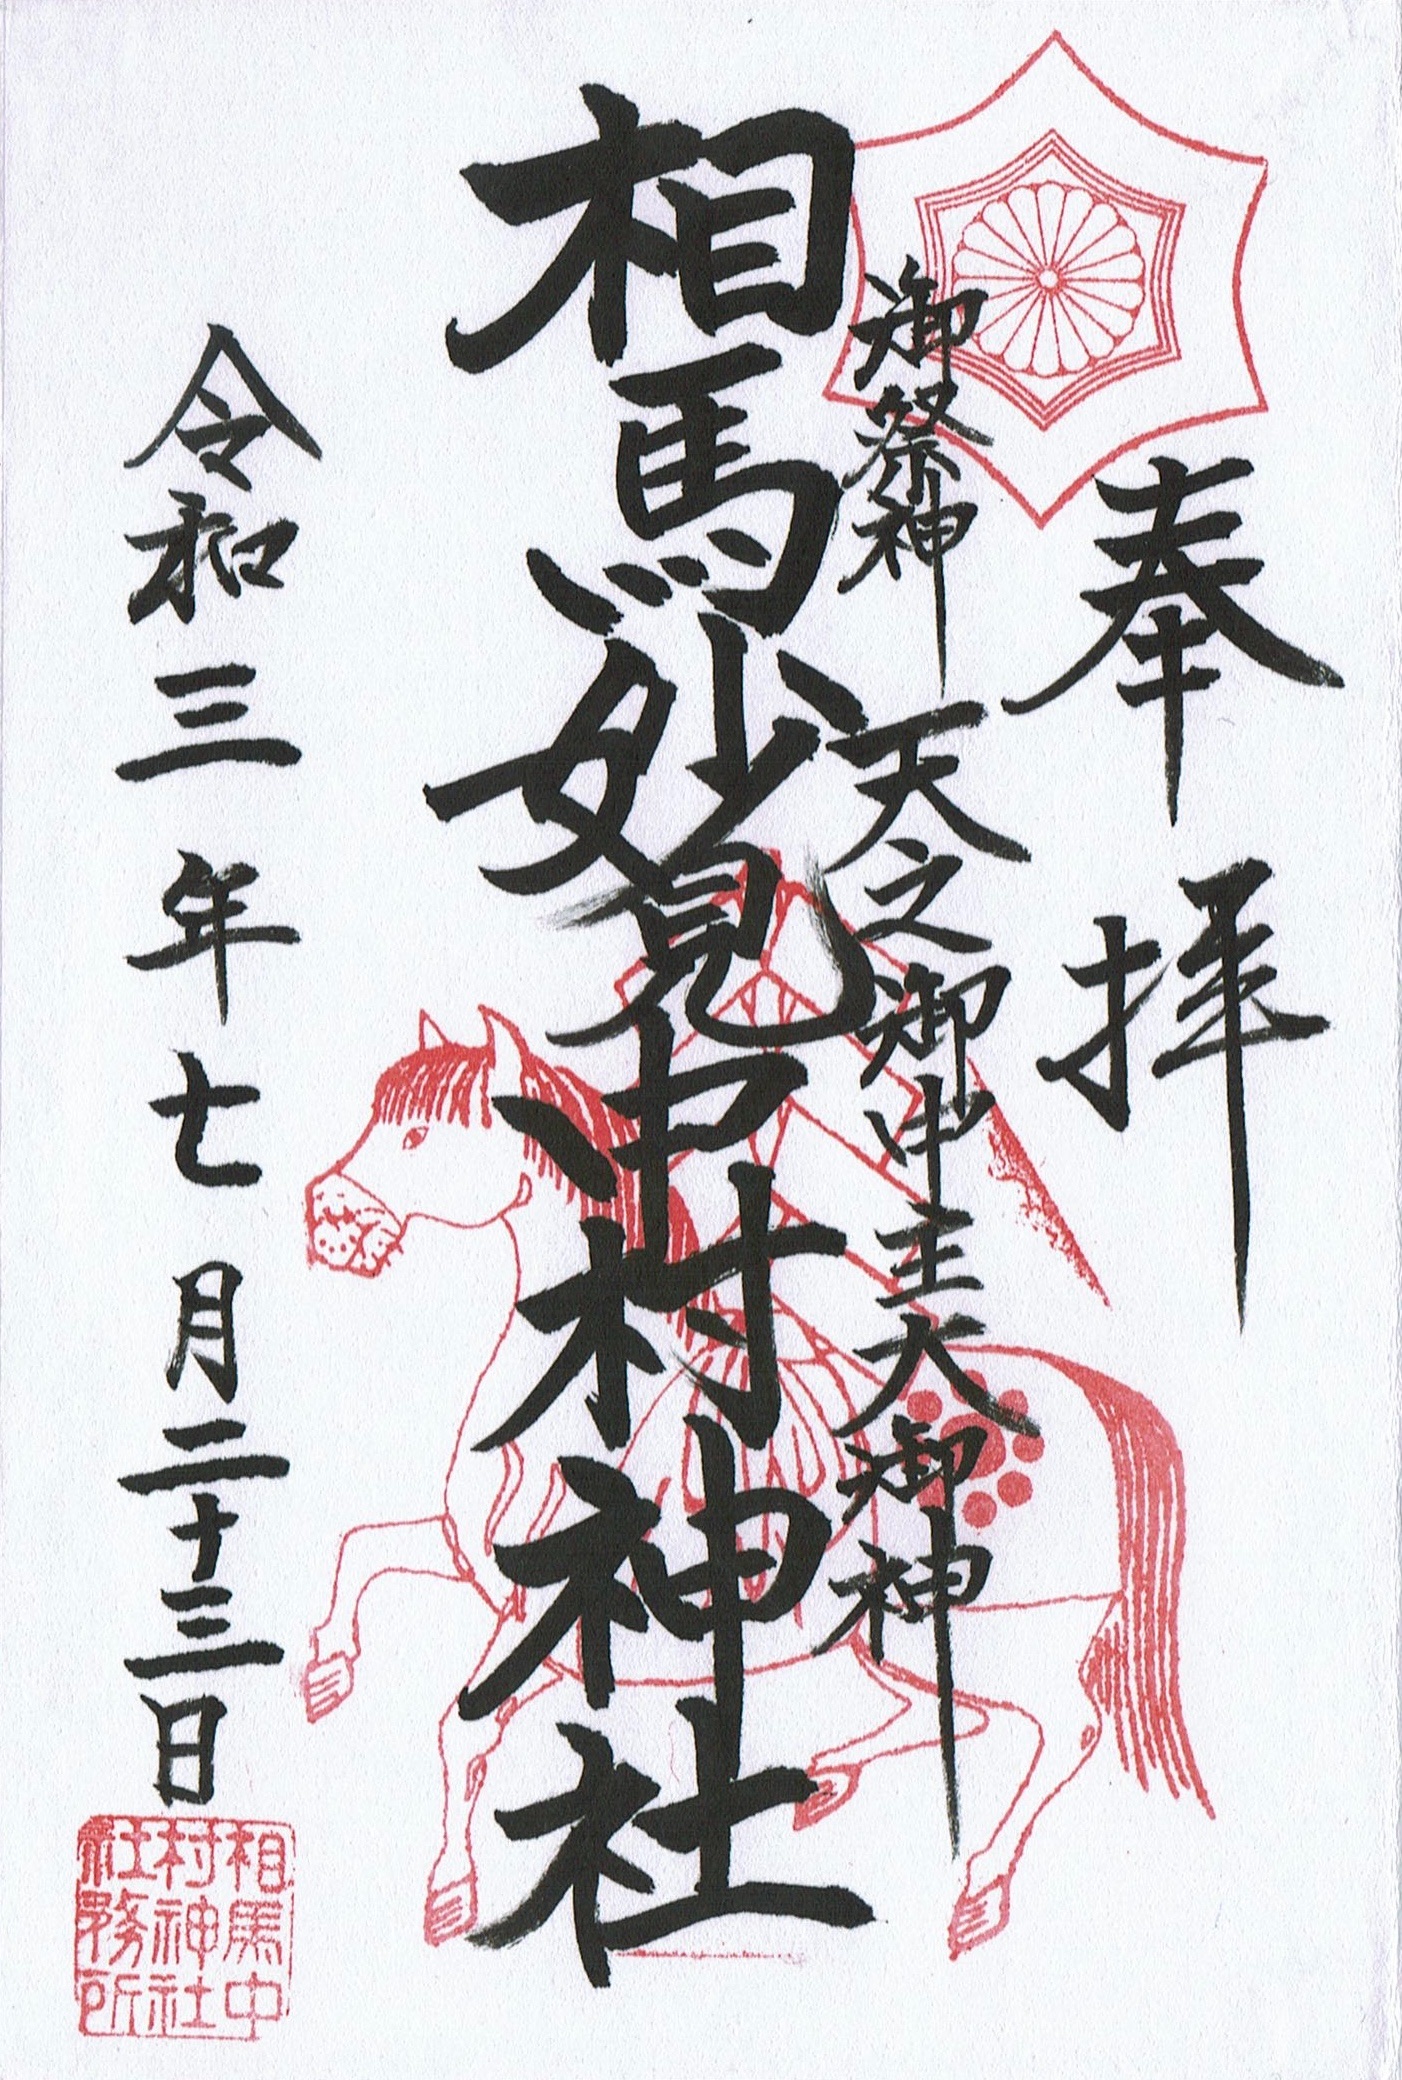 奉拝
御祭神 天之御中主大御神
相馬妙見中村神社
令和三年七月二十三日
相馬中
村神社
社務所